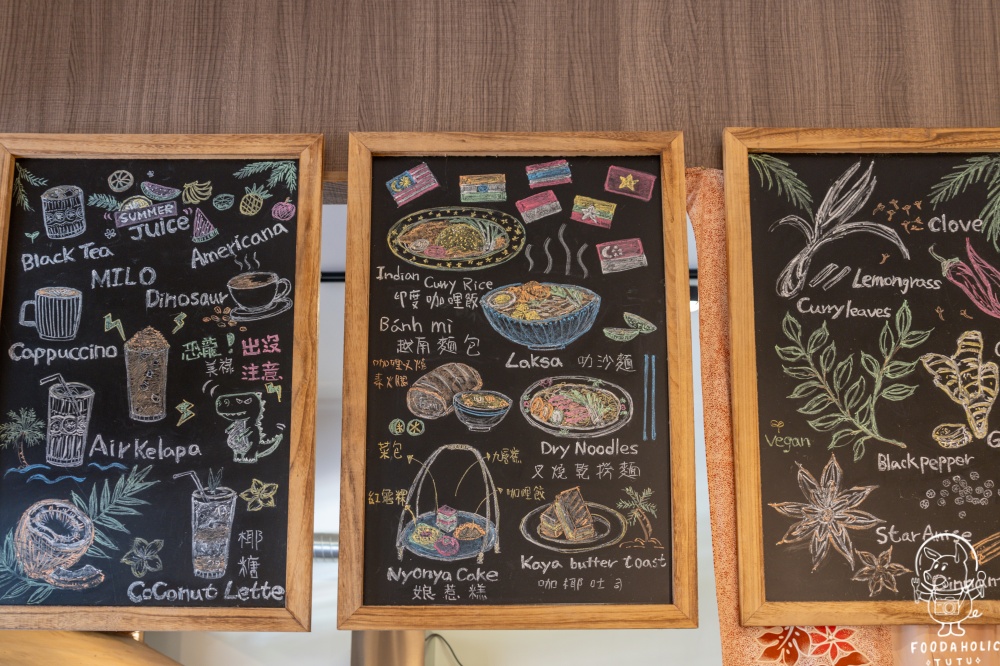 SUMMER
JUICE
Black Tea
Americana
MILO
Dinosaur
Cappuccino
恐龍
美祿
出沒
注意
Air Kelapa
椰
糖
CoConut Lette
Indian Curry Rice
印度咖哩飯
Bánh mì
越南麵包
咖哩叉燒
Laksa 叻沙麵
Dry Noodles
叉燒乾撈麵
菜包
九層糕
紅龜粿
咖哩餃
Nyonya Cake
娘惹糕
Kaya butter toast
咖椰吐司
Clove
Lemongrass
Curry leaves
Vegan
Black pepper
Star Anise
FOODAHOLIC
TUTU